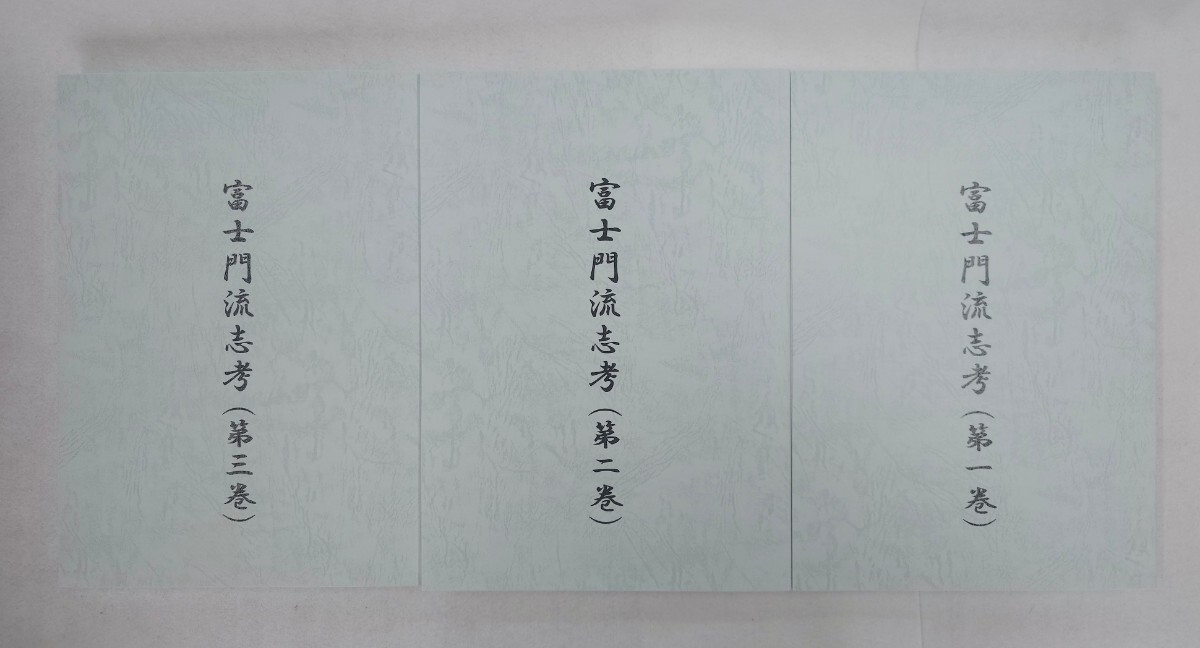 富士門流志考（第一巻）
富士門流志考（第二巻）
富士門流志考（第三巻）